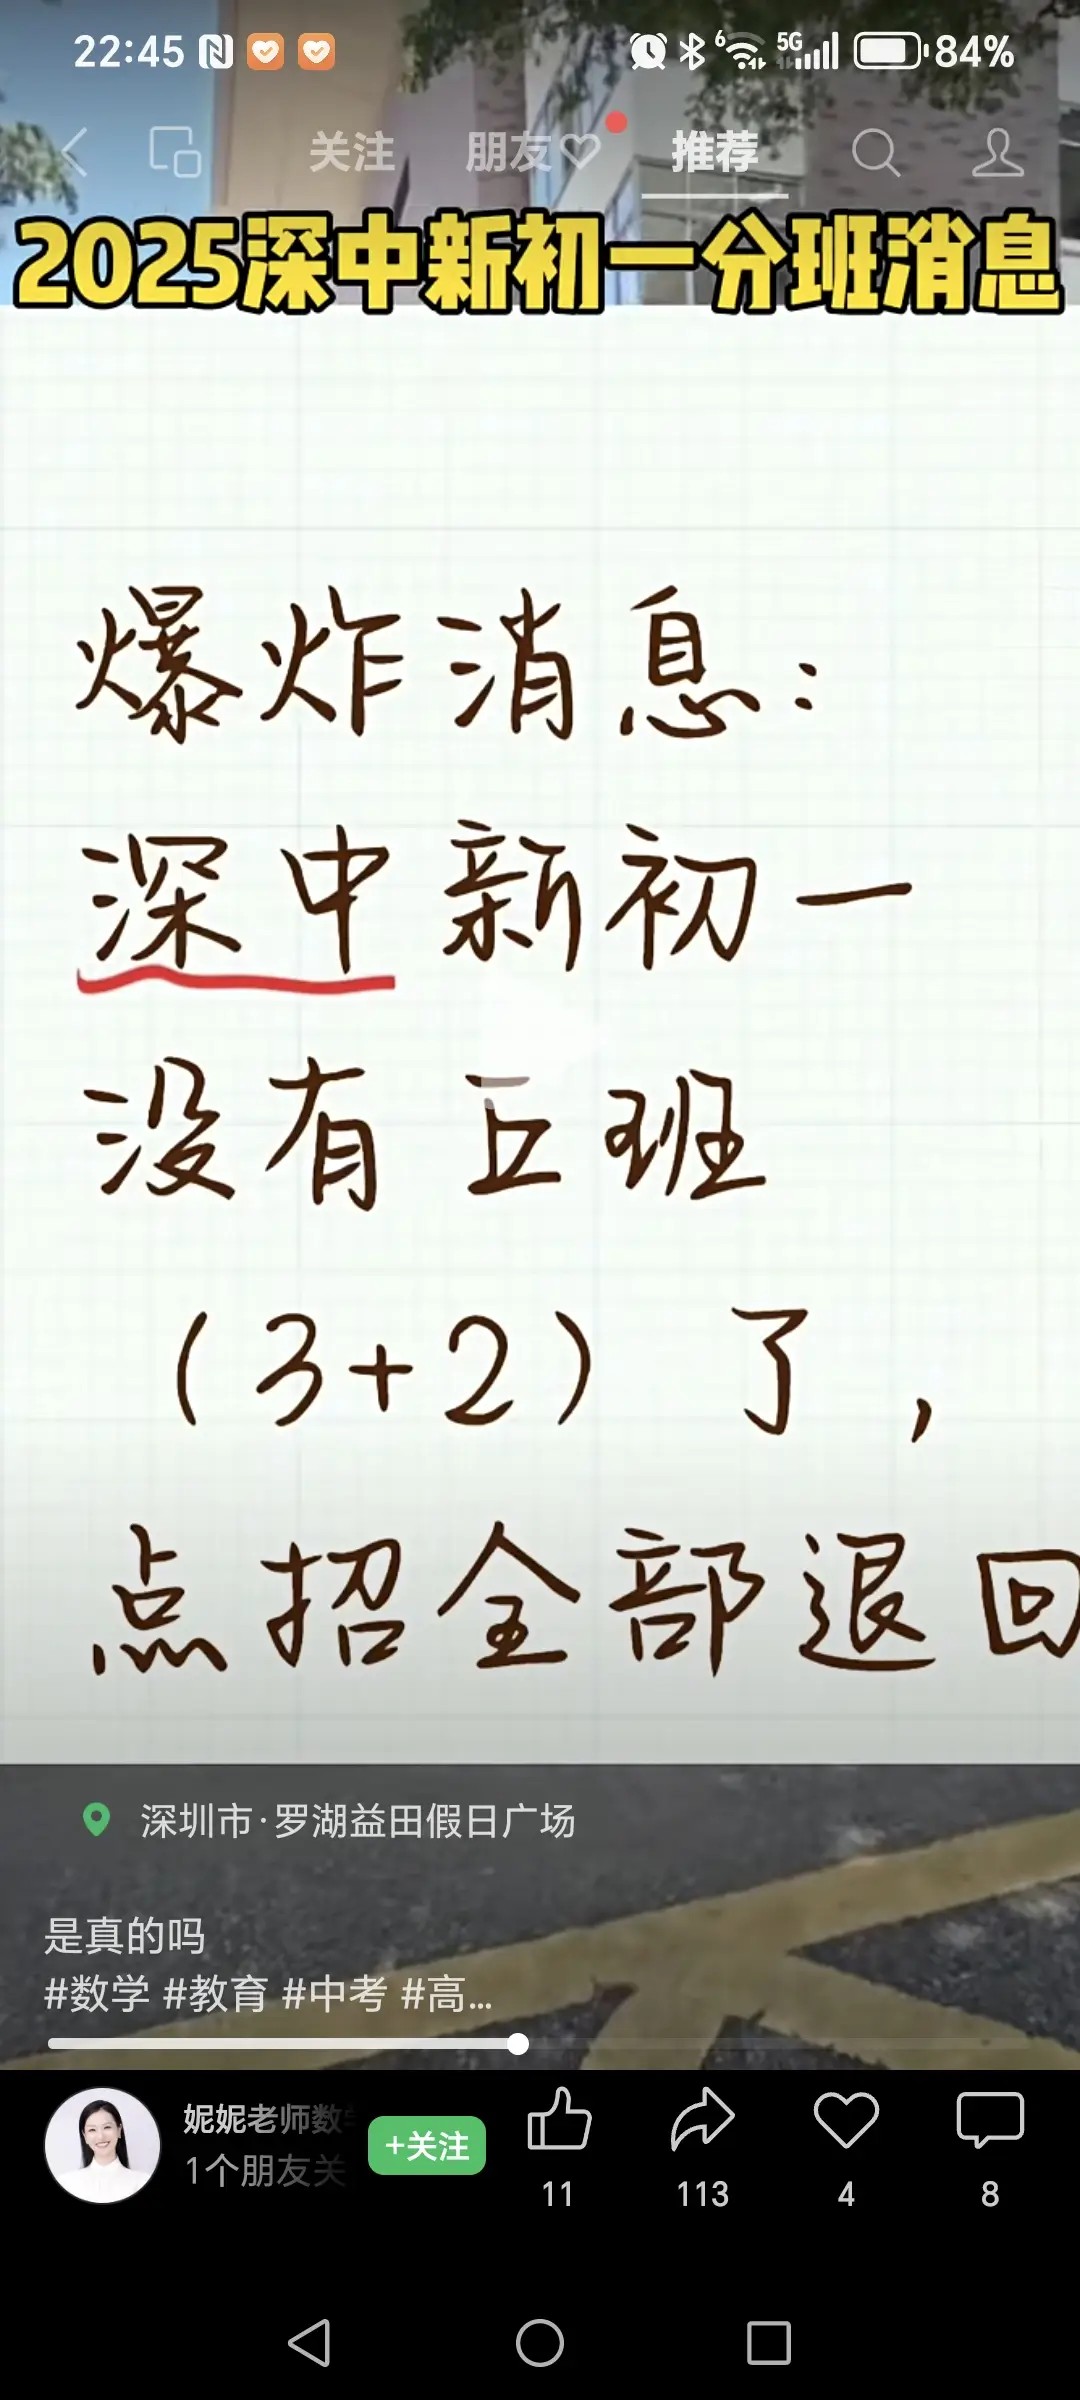 22:45 6 5G 84%
关注 朋友 推荐
2025深中新初一分班消息
爆炸消息：
深中新初一
没有丘班
（3+2）了，
点招全部退回
深圳市·罗湖益田假日广场
是真的吗
#数学 #教育 #中考 #高...
妮妮老师数学
+关注
1个朋友关
11 113 4 8